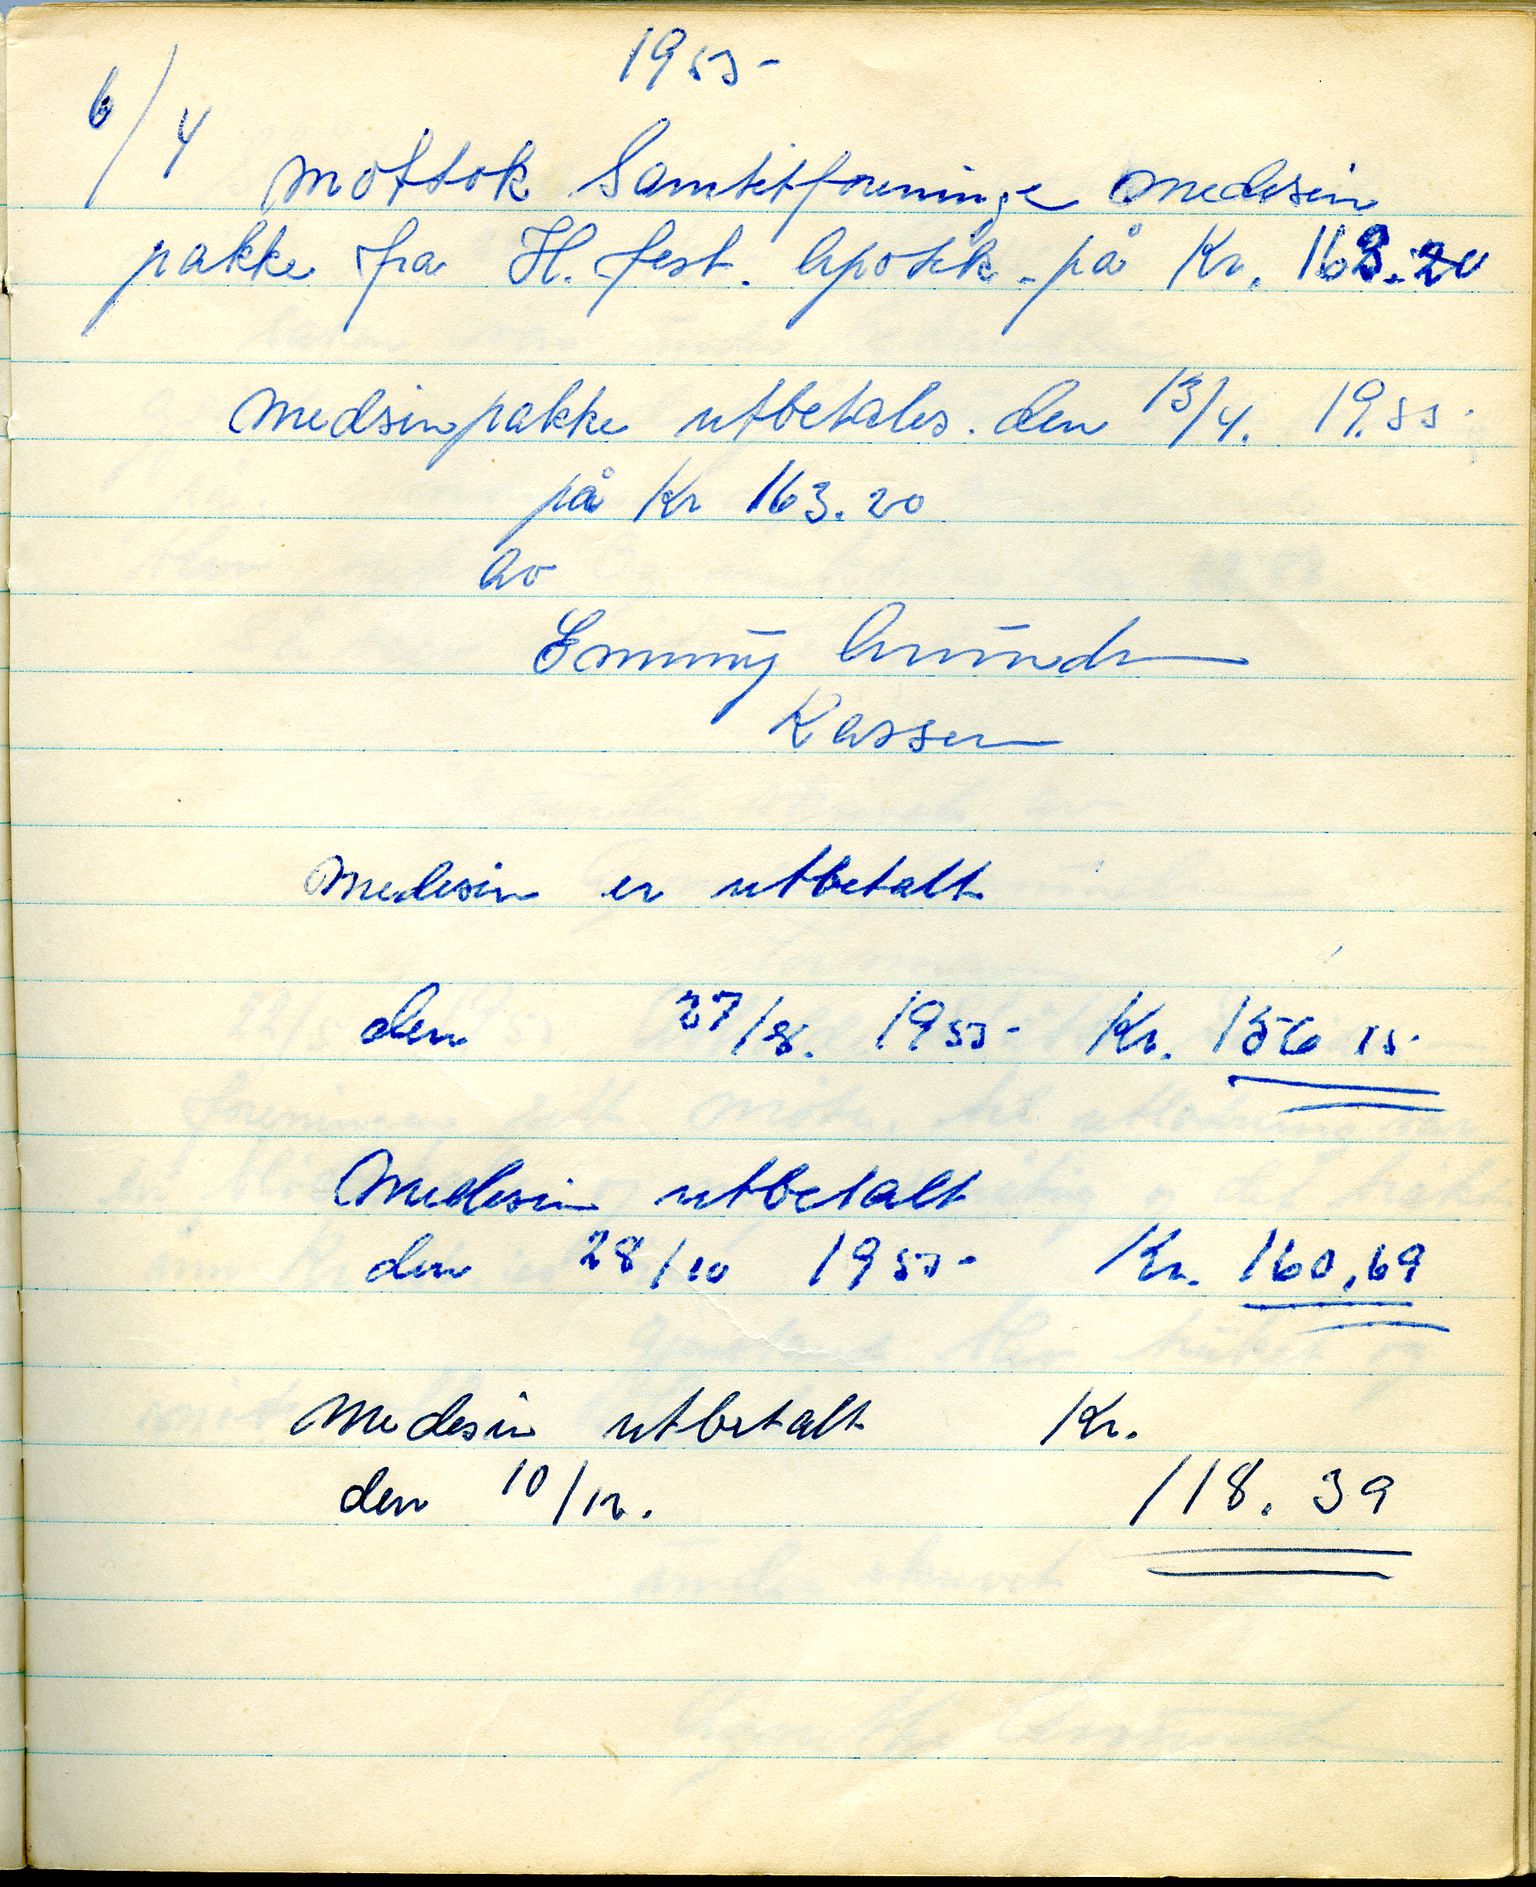 1955
6/4
mottok Samtitforeninge medesin
pakke fra H. fest. Apotek på Kr. 163.20
Medsinpakke utbetales. den 13/4. 19.55
på Kr 163.20
av
Emmy Amundsen
Kasser
Medesin er utbetalt
den 27/8. 1955 Kr. 156 15
Medesin utbetalt
den 28/10 1955 Kr. 160,69
Medesin utbetalt Kr.
den 10/12. 118.39